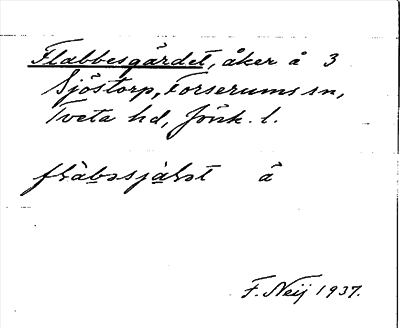 Flabbesgärdet, åker å 3
Sjöstorp, Forserums sn,
Tveta hd, Jönk. l.
å
F. Neij 1937.